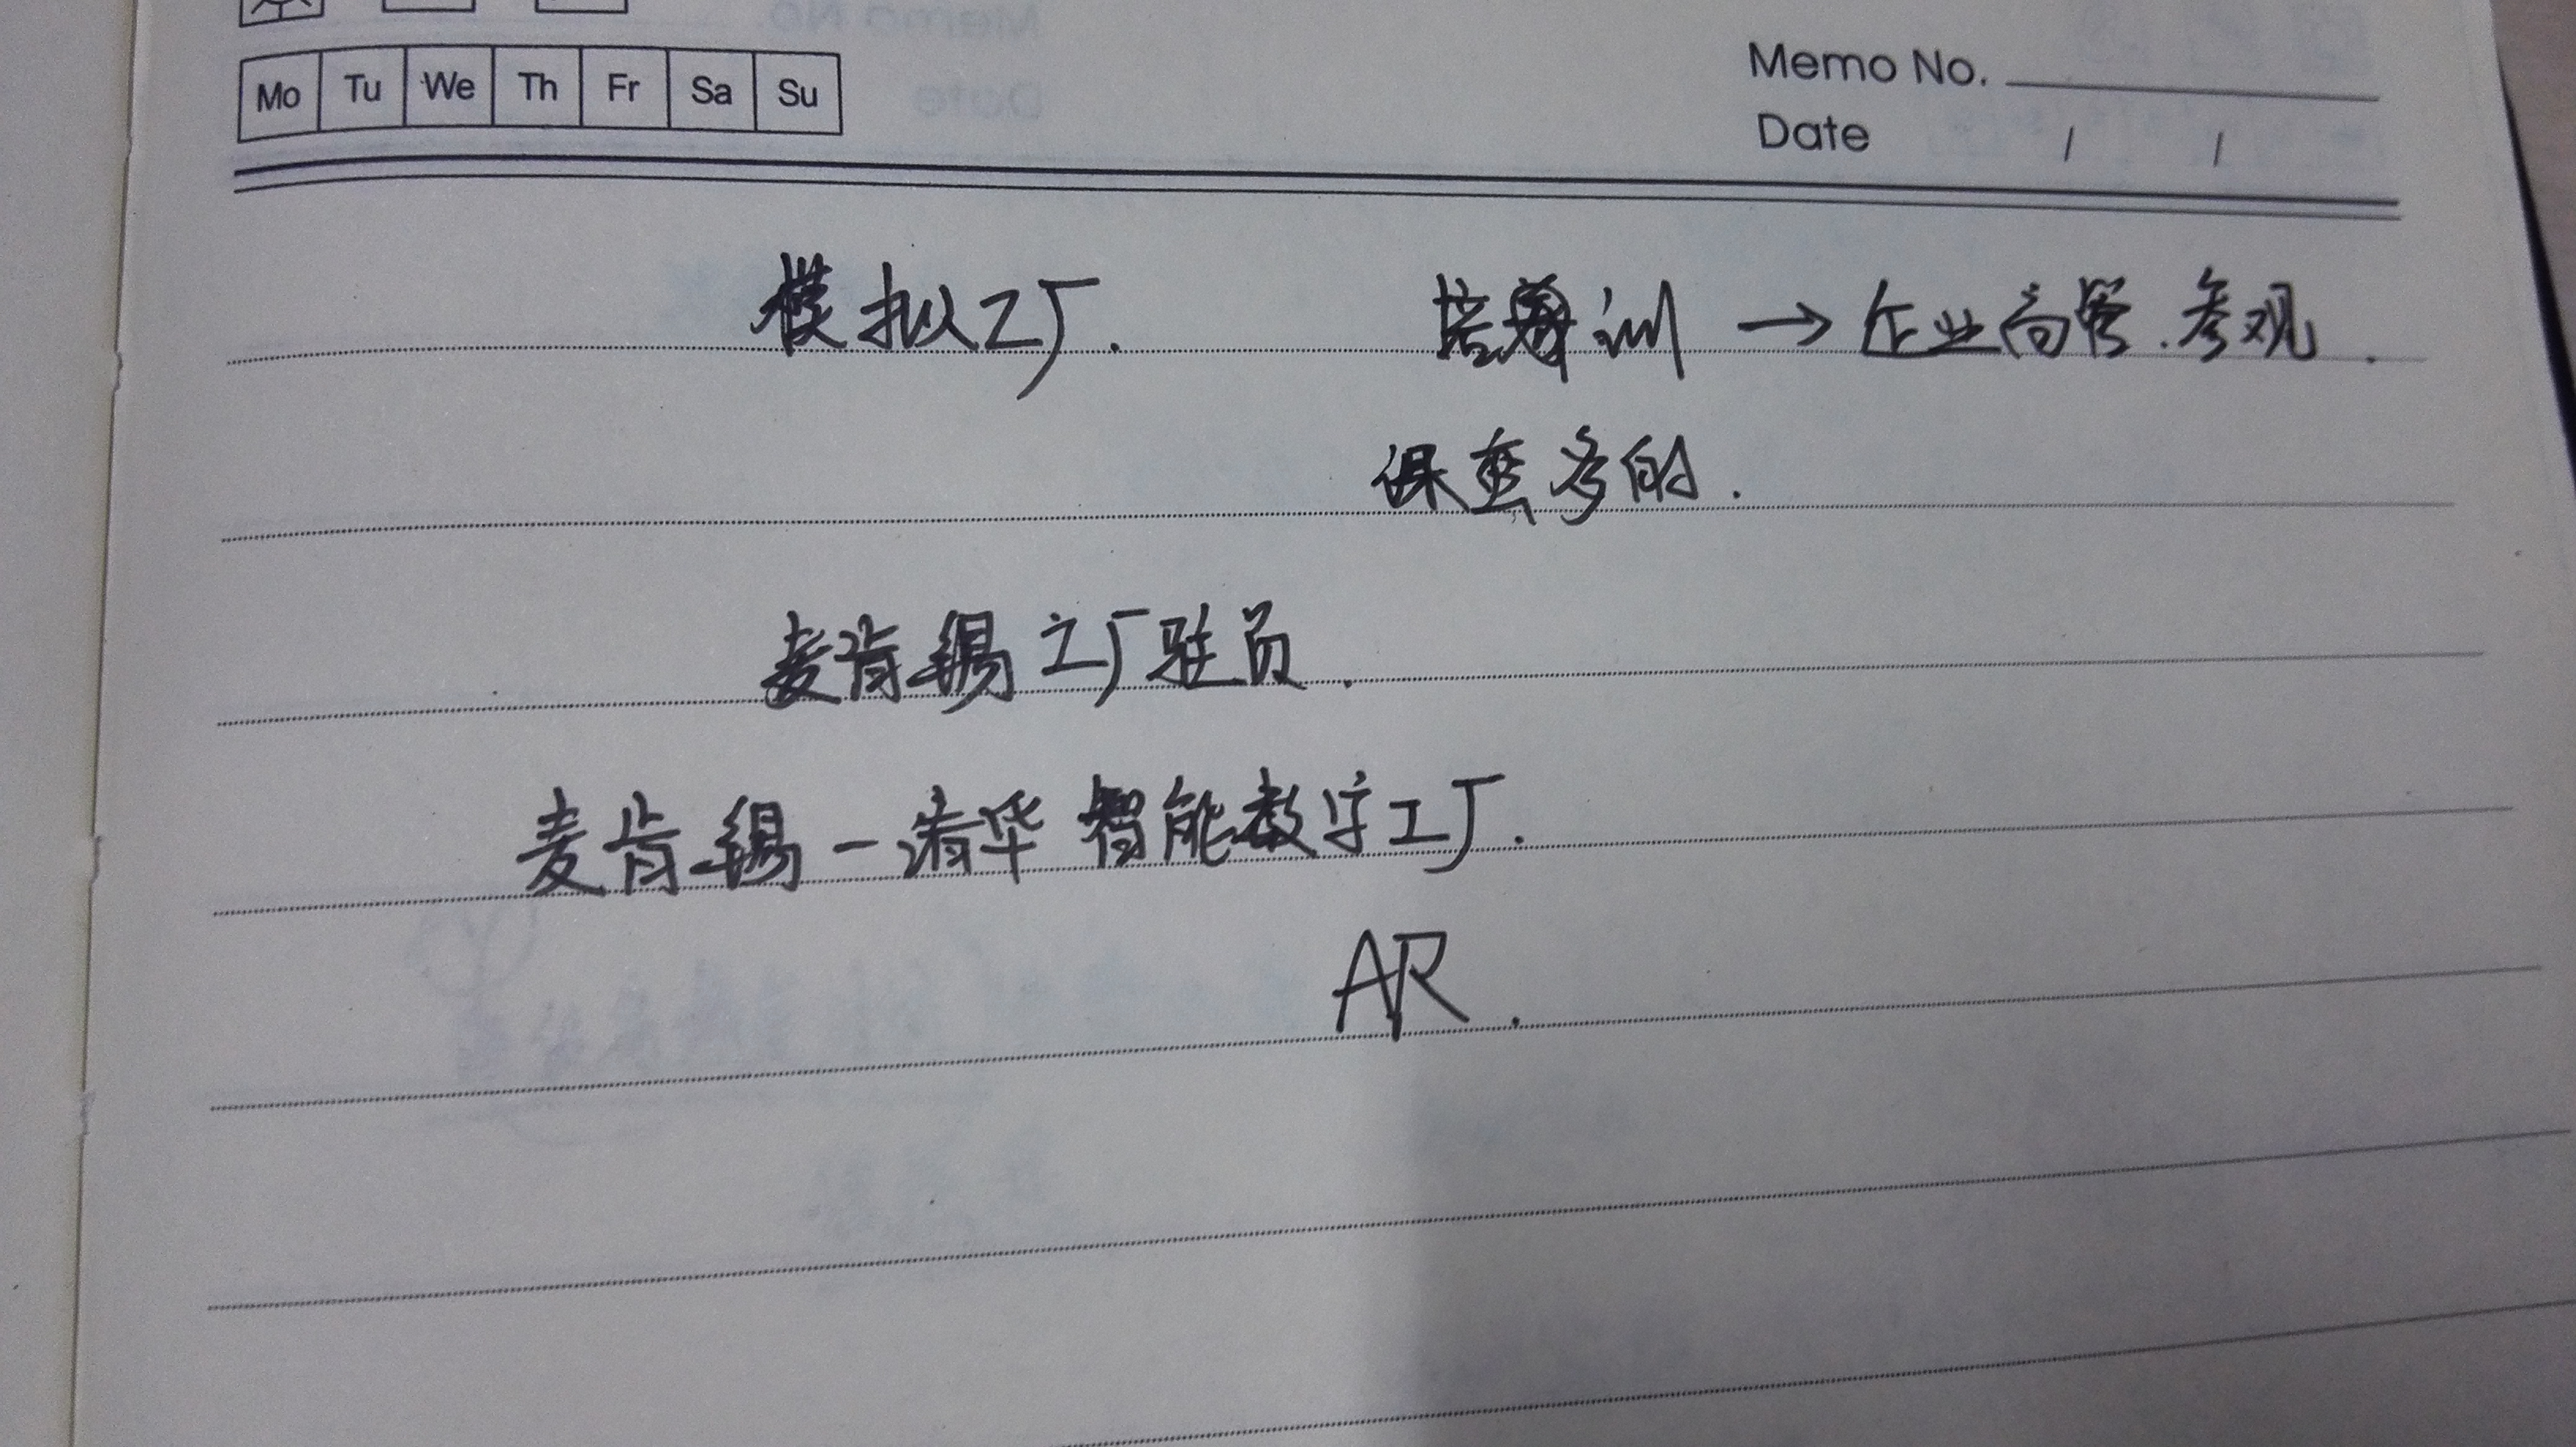 Mo Tu We Th Fr Sa Su
Memo No.
Date / /
模拟工厂. 培训 → 企业高管.参观.
保查多的.
麦肯锡工厂驻员.
麦肯锡-清华智能数字工厂.
AR.